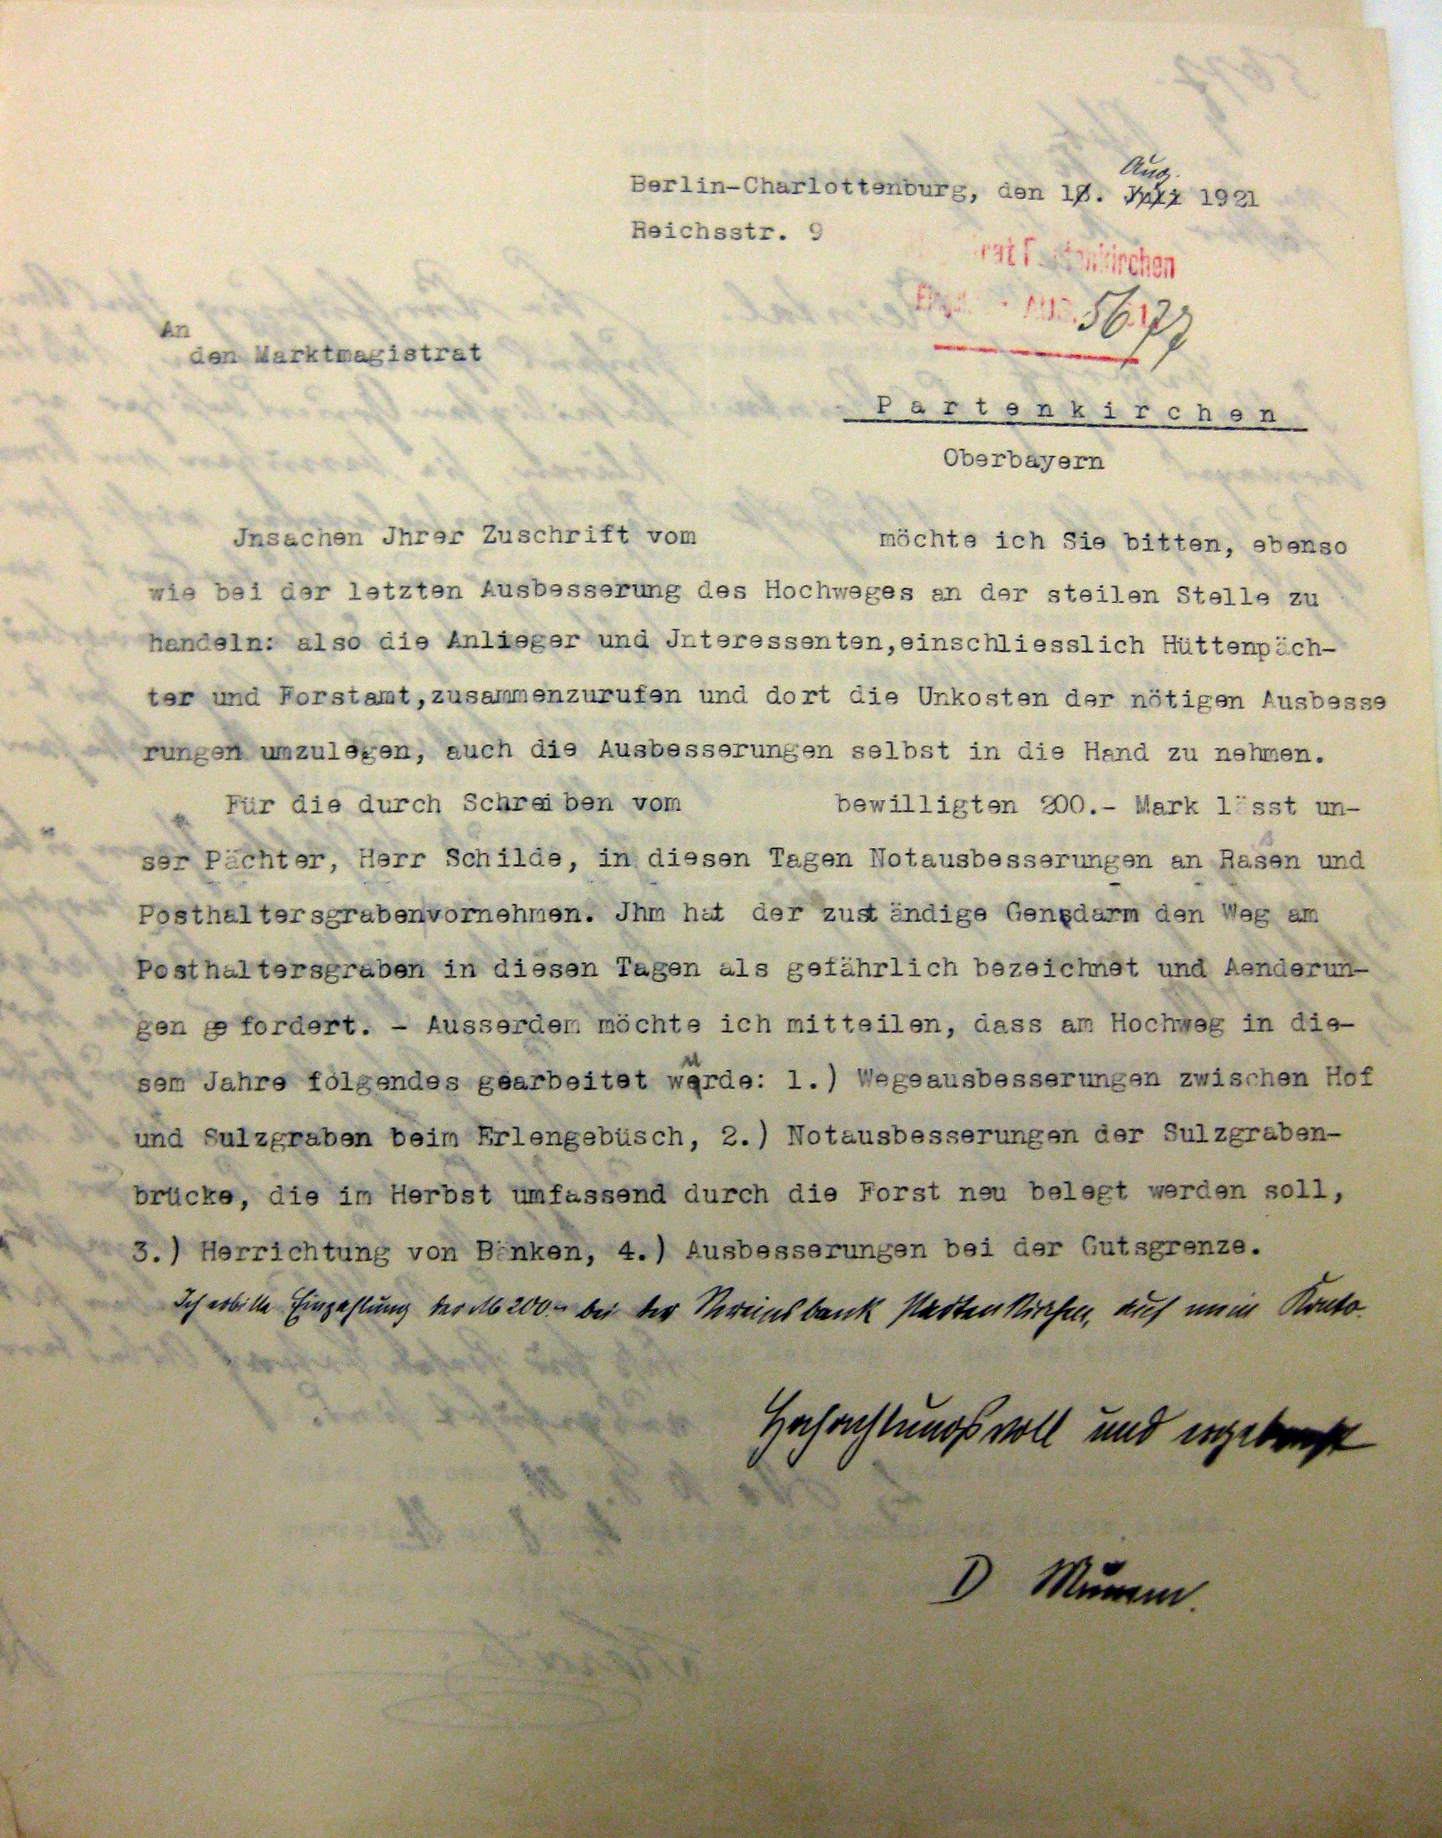 Aug.
Berlin-Charlottenburg, den 1. 1921
Reichsstr. 9
Partenkirchen
5677
An
den Marktmagistrat
Partenkirchen
Oberbayern
Jnsachen Jhrer Zuschrift vom möchte ich Sie bitten, ebenso
wie bei der letzten Ausbesserung des Hochweges an der steilen Stelle zu
handeln: also die Anlieger und Jnteressenten,einschliesslich Hüttenpäch-
ter und Forstamt,zusammenzurufen und dort die Unkosten der nötigen Ausbesse
rungen umzulegen, auch die Ausbesserungen selbst in die Hand zu nehmen.
Für die durch Schreiben vom bewilligten 200.- Mark lässt un-
ser Pächter, Herr Schilde, in diesen Tagen Notausbesserungen an Rasen und
Posthaltersgrabenvornehmen. Jhm hat der zuständige Gensdarm den Weg am
Posthaltersgraben in diesen Tagen als gefährlich bezeichnet und Aenderun-
gen gefordert. - Ausserdem möchte ich mitteilen, dass am Hochweg in die-
sem Jahre folgendes gearbeitet wurde: 1.) Wegeausbesserungen zwischen Hof
und Sulzgraben beim Erlengebüsch, 2.) Notausbesserungen der Sulzgraben-
brücke, die im Herbst umfassend durch die Forst neu belegt werden soll,
3.) Herrichtung von Bänken, 4.) Ausbesserungen bei der Gutsgrenze.
Ich erbitte Einzahlung der M 200.- bei der Vereinsbank Partenkirchen, auf mein Konto.
Hochachtungsvoll und ergebenst
D Mumm.